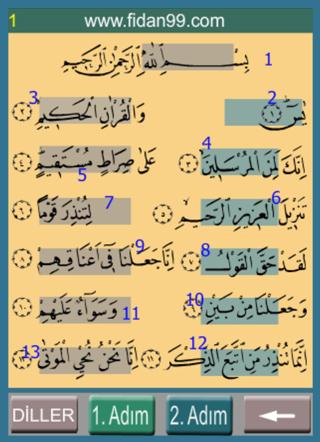 1 www.fidan99.com
بِسْمِ اللّٰهِ الرَّحْمٰنِ الرَّحِيمِ 1
يٰسٓ ﴿١﴾ 2 وَالْقُرْاٰنِ الْحَكِيمِ ﴿٢﴾ 3
اِنَّكَ لَمِنَ الْمُرْسَلِينَ ﴿٣﴾ 4 عَلٰى صِرَاطٍ مُسْتَقِيمٍ ﴿٤﴾ 5
تَنْزِيلَ الْعَزِيزِ الرَّحِيمِ ﴿٥﴾ 6 لِتُنْذِرَ قَوْمًا ﴿٦﴾ 7
لَقَدْ حَقَّ الْقَوْلُ ﴿٧﴾ 8 اِنَّا جَعَلْنَا فِى اَعْنَاقِهِمْ ﴿٨﴾ 9
وَجَعَلْنَا مِنْ بَيْنِ ﴿٩﴾ 10 وَسَوَاءٌ عَلَيْهِمْ ﴿١٠﴾ 11
اِنَّمَا تُنْذِرُ مَنِ اتَّبَعَ الذِّكْرَ ﴿١١﴾ 12 اِنَّا نَحْنُ نُحْيِ الْمَوْتٰى ﴿١٢﴾ 13
DİLLER 1. Adım 2. Adım